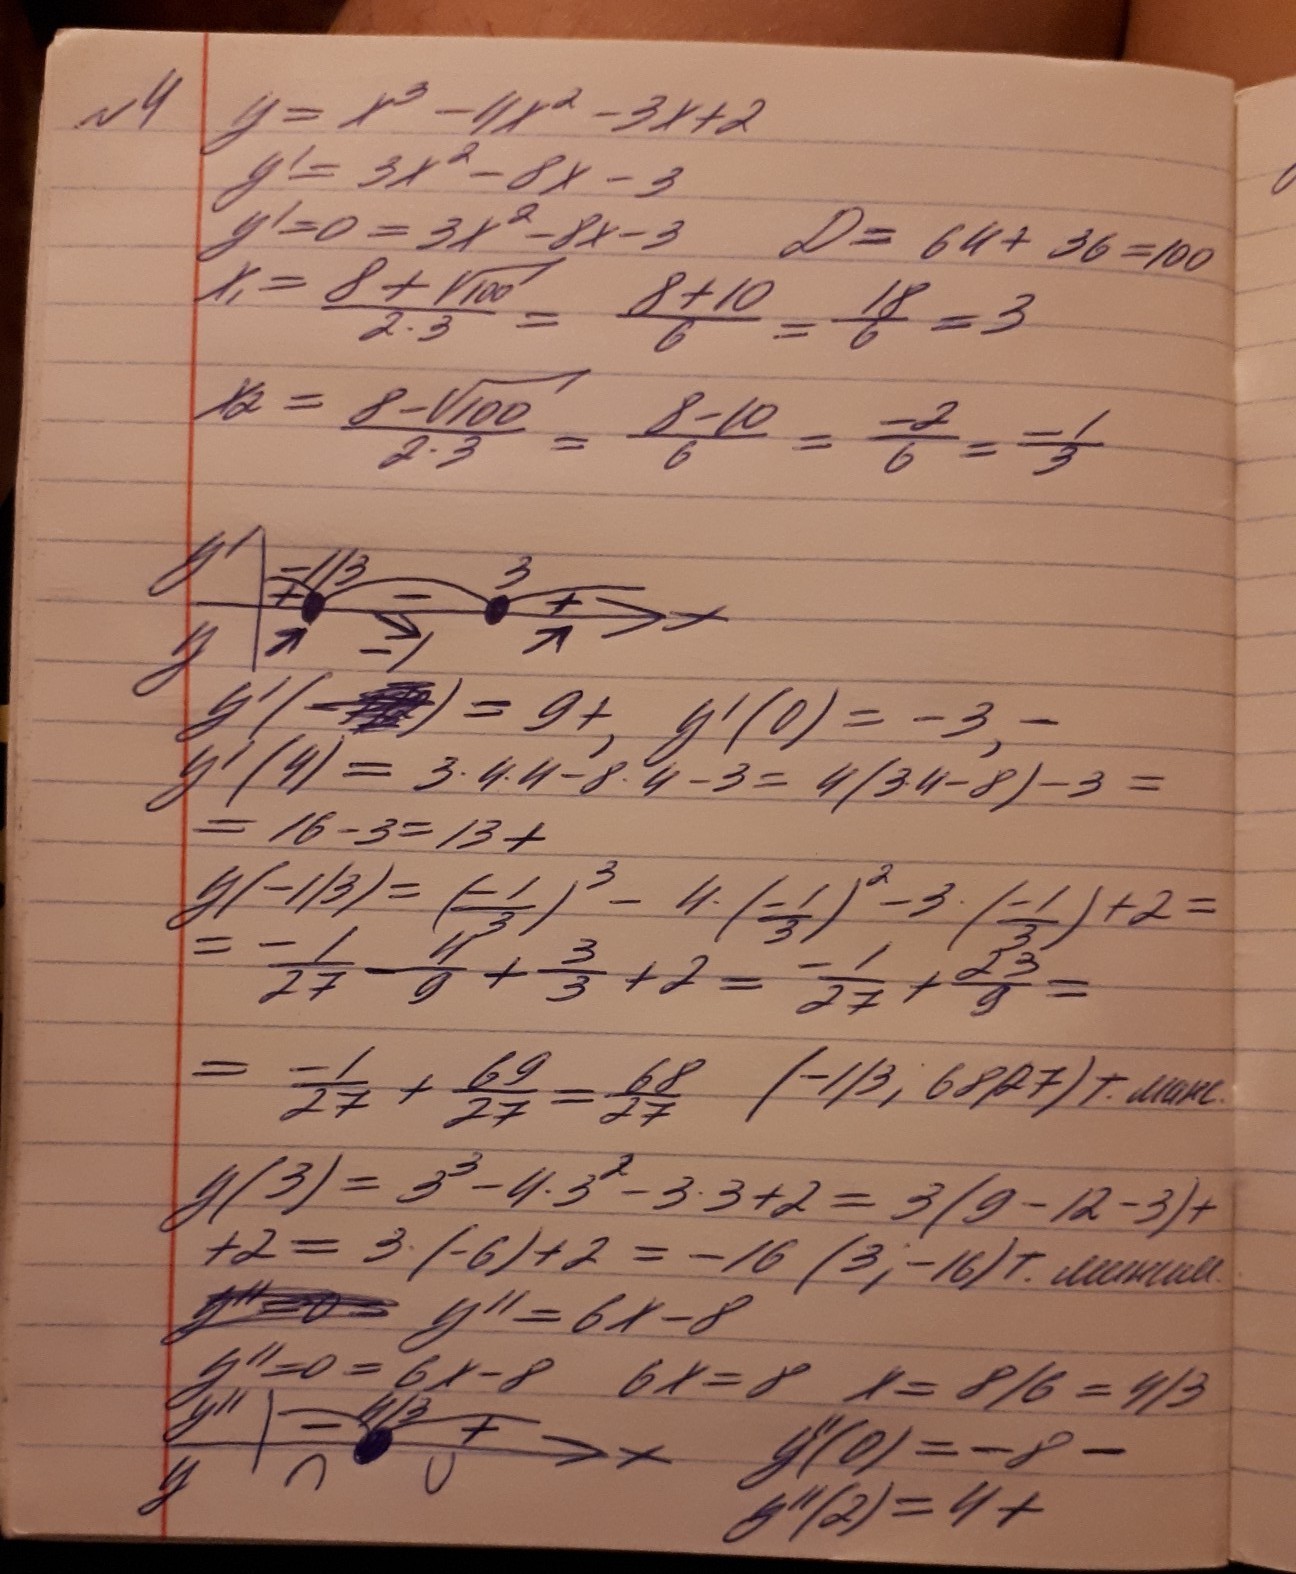 №4 y = x³ - 4x² - 3x + 2
y' = 3x² - 8x - 3
y'=0 = 3x² - 8x - 3 D = 64 + 36 = 100
x₁ = (8 + √100)/(2·3) = (8+10)/6 = 18/6 = 3
x₂ = (8 - √100)/(2·3) = (8-10)/6 = -2/6 = -1/3
y' -1/3 3
+ - + x
y -1
y'(-) = 9 +, y'(0) = -3, -
y'(4) = 3·4·4 - 8·4 - 3 = 4(3·4 - 8) - 3 =
= 16 - 3 = 13 +
y(-1/3) = (-1/3)³ - 4·(-1/3)² - 3·(-1/3) + 2 =
= -1/27 - 4/9 + 3/3 + 2 = -1/27 + 23/9 =
= -1/27 + 69/27 = 68/27 (-1/3; 68/27) т. макс.
y(3) = 3³ - 4·3² - 3·3 + 2 = 3(9 - 12 - 3) +
+2 = 3·(-6) + 2 = -16 (3; -16) т. миним.
y'' = 6x - 8
y''=0 = 6x - 8 6x = 8 x = 8/6 = 4/3
y'' - 4/3 + x y''(0) = -8 -
y ∩ ∪ y''(2) = 4 +